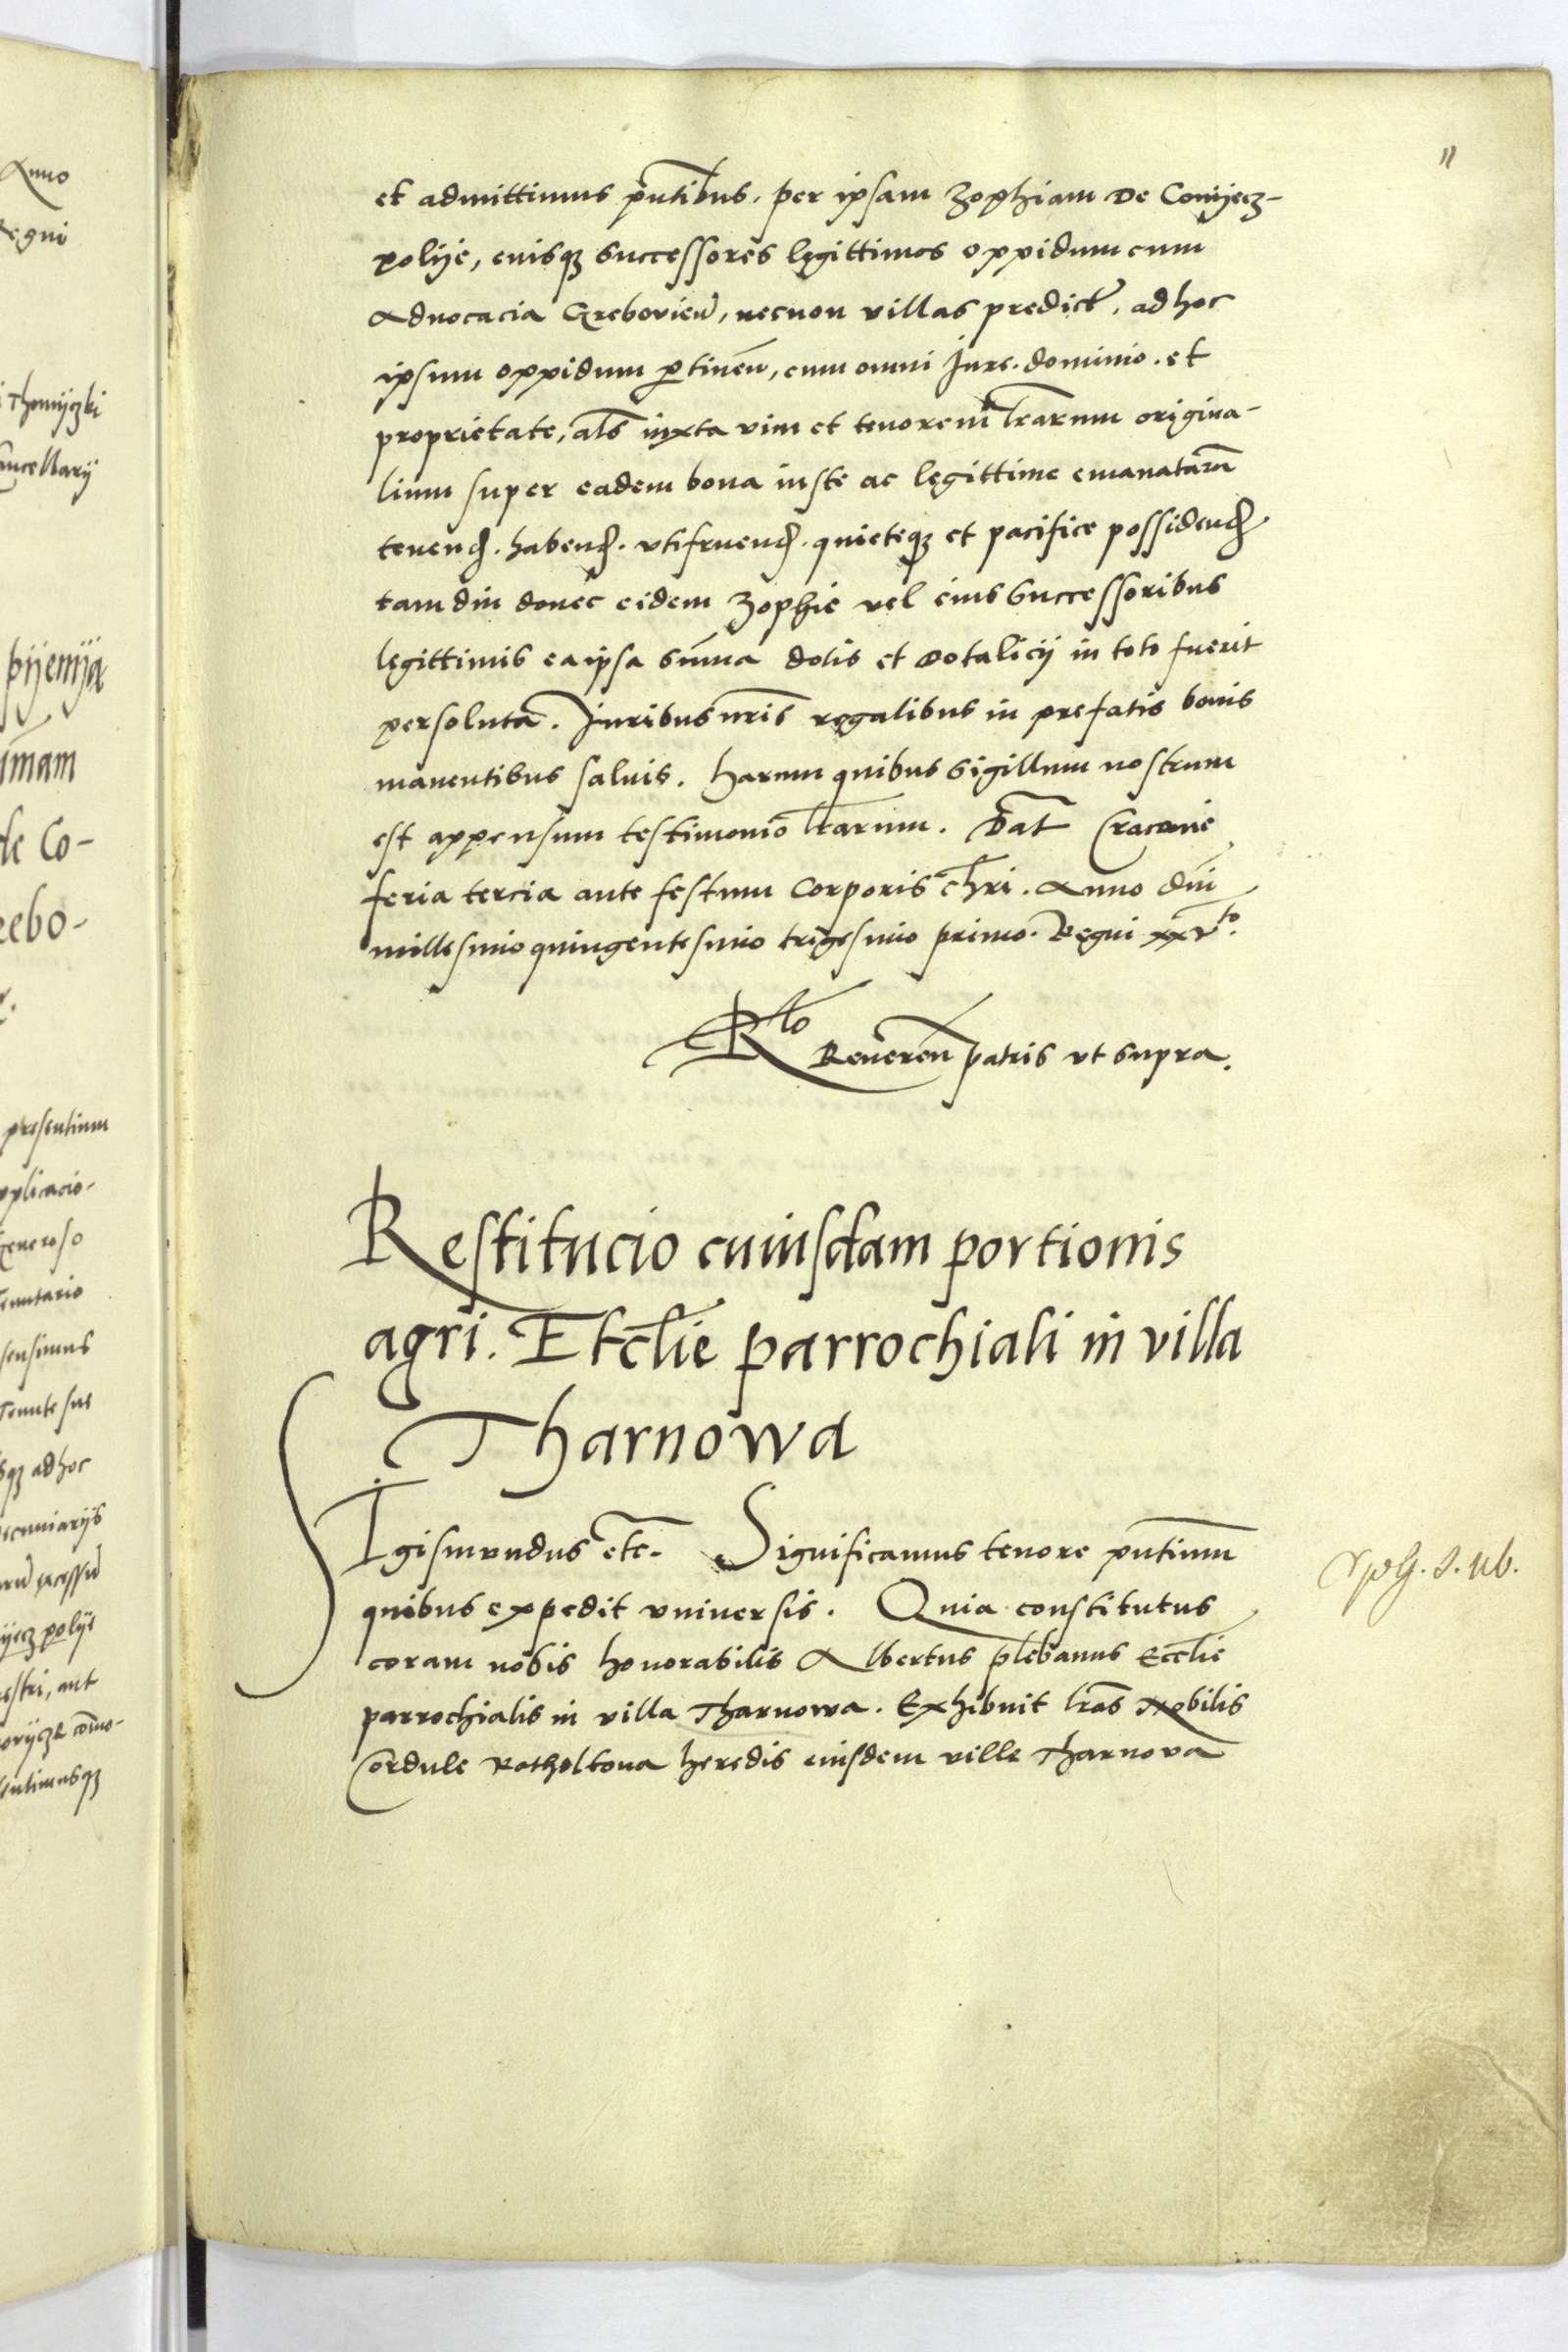 11
et admittimus pñtibus. per ipsam Zophiam De Conijecz-
polije, eiusq3 successores legittimos oppidum cum
Aduocacia Grebovien̄, necnon villas predict̄, ad hoc
ipsum oppidum ꝑtineñ, cum omni Jure. dominio. et
proprietate, al̄s iuxta vim et tenorem l̄rarum origina-
lium super eadem bona iuste ac legittime emanatarū
tenend̄. habend̄. vtifruend̄. quieteq3 et pacifice possidend̄
tam diu donec eidem Zophie vel eius Successoribus
legittimis ea ipsa sūma dotis et dotalicij in toto fuerit
persoluta. Juribus nr̄is regalibus in prefatis bonis
manentibus saluis. harum quibus Sigillum nostrum
est appensum testimonio l̄rarum. Dat̄ Cracovie
feria tercia ante festum Corporis chr̄i. Anno dn̄i
millesimo quingentesimo trigesimo primo. Regni xxvto.
Rlo
Reueren̄ patris vt supra.
Restitucio cuiusdam portionis
agri. Etcl̄ie parrochiali in villa
Tharnowa
SIgismundus etc̄. Significamus tenore pn̄tium
quibus expedit vniuersis. Quia constitutus
coram nobis honorabilis Albertus pl̄ebanus Eccl̄ie
parrochialis in villa Tharnowa. Exhibuit l̄ras Nobilis
Cordule Rotholtowa heredis eiusdem ville Tharnova
Anno
Regni
Thomijczki
Cancellarij
pijenija
imam
de Co-
rebo-
presentium
pplicacio-
Generoso
Tenutario
sensimus
Tenute sue
sq3 ad hoc
ecuniarijs
ijecz polije
estri, aut
orijcze com̄o-